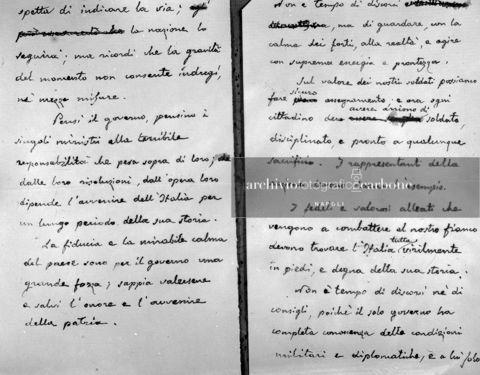 spetta di indicare la via; egli
la nazione lo
seguirà; ma ricordi che la gravità
del momento non consente indugi,
nè mezze misure.
Pensi il governo, pensino i
singoli ministri alla terribile
responsabilità che pesa sopra di loro; che
dalle loro risoluzioni, dall'opera loro
dipende l'avvenire dell'Italia per
un lungo periodo della sua storia.
La fiducia e la mirabile calma
del paese sono per il governo una
grande forza; sappia valersene
e salvi l'onore e l'avvenire
della patria.
Non è tempo di discorsi
, ma di guardare, con la
calma dei forti, alla realtà, e agire
con suprema energia e prontezza.
Sul valore dei nostri soldati possiamo
fare sicuro assegnamento; e ora ogni
cittadino deve avere animo di soldato
disciplinato e pronto a qualunque
sacrificio. I rappresentanti della
esempio.
I fedeli e valorosi alleati che
vengono a combattere al nostro fianco
devono trovare l'Italia tutta virilmente
in piedi, e degna della sua storia.
Non è tempo di discorsi nè di
consigli, poichè il solo governo ha
completa conoscenza delle condizioni
militari e diplomatiche, e a lui solo
archiviofotograficocarbone
NAPOLI